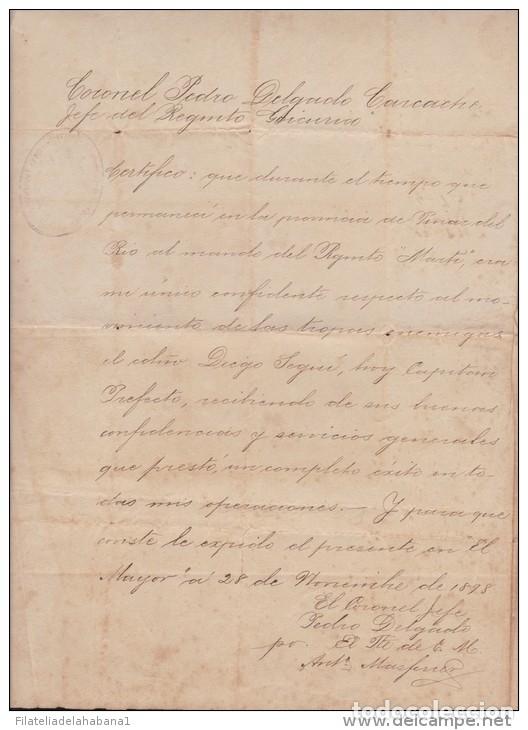 Coronel Pedro Delgado Carcache
Jefe del Regmto "Goicuria"
Certifico: que durante el tiempo que
permanecí en la provincia de Pinar del
Rio al mando del Rgmto "Martí", era
mi único confidente respecto al mo-
vimiento de las tropas enemigas
el cdno Diego Seguí, hoy Capitan
Prefecto, recibiendo de sus buenas
confidencias y servicios generales
que prestó, un completo éxito en to-
das mis operaciones.— Y para que
conste le expido el presente en "El
Mayor" a 28 de Noviembre de 1898
El Coronel Jefe
Pedro Delgado
po. El Tte de E. M.
Ant.
todocoleccion
Filateliadelahabana1
todocoleccion.net